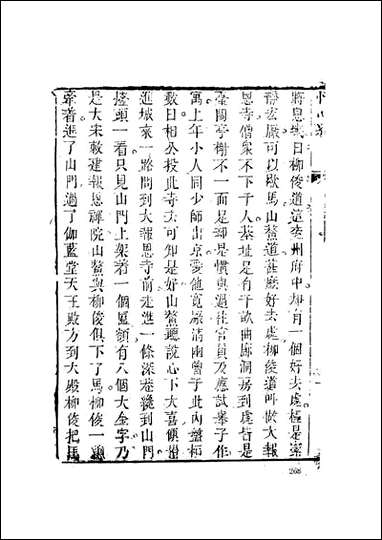 將息幾日柳俊道這㳂州府中却有一個好去處極是寬
濶宏嚴可以歇馬山鰲道甚麽好去處柳俊道叫做大報
恩寺僧衆不下千人基址足有千畝曲廊洞房到處皆是
臺閣亭榭不一而足却是慣與過往官員及應試舉子作
寓上年小人同少師出京愛他寬厰清幽曾于此內盤桓
數日相公投此寺去可知是好山鰲聽說心下大喜
進城來一路問到大報恩寺前走進一條深巷纔到山門
擡頭一看只見山門上架着一個匾額有八個大金字乃
是大宋敕建報恩禪院山鰲與柳俊俱下了馬柳俊一
牽着進了山門過了伽藍堂天王殿方到大殿柳俊把馬
268